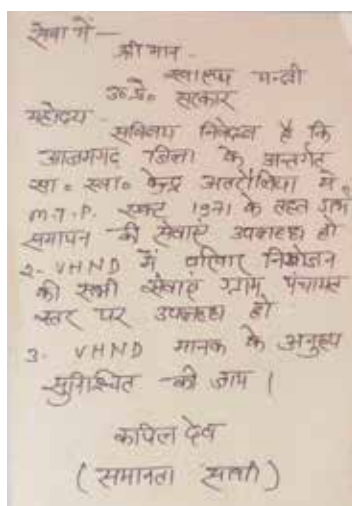 सेवा में —
श्री मान -
स्वास्थ्य मन्त्री
उ० प्र० सरकार
महोदय -
सविनय निवेदन है कि
आजमगढ़ जिला के अन्तर्गत
सा० स्वा० केन्द्र अतरौलिया में
M.T.P. एक्ट 1971 के तहत गर्भ
समापन की सेवाएं उपलब्ध हो
2- VHND में परिवार नियोजन
की सभी सेवाएं ग्राम पंचायत
स्तर पर उपलब्ध हो
3- VHND मानक के अनुरूप
सुनिश्चित की जाय ।
कपिल देव
(समानता साथी)